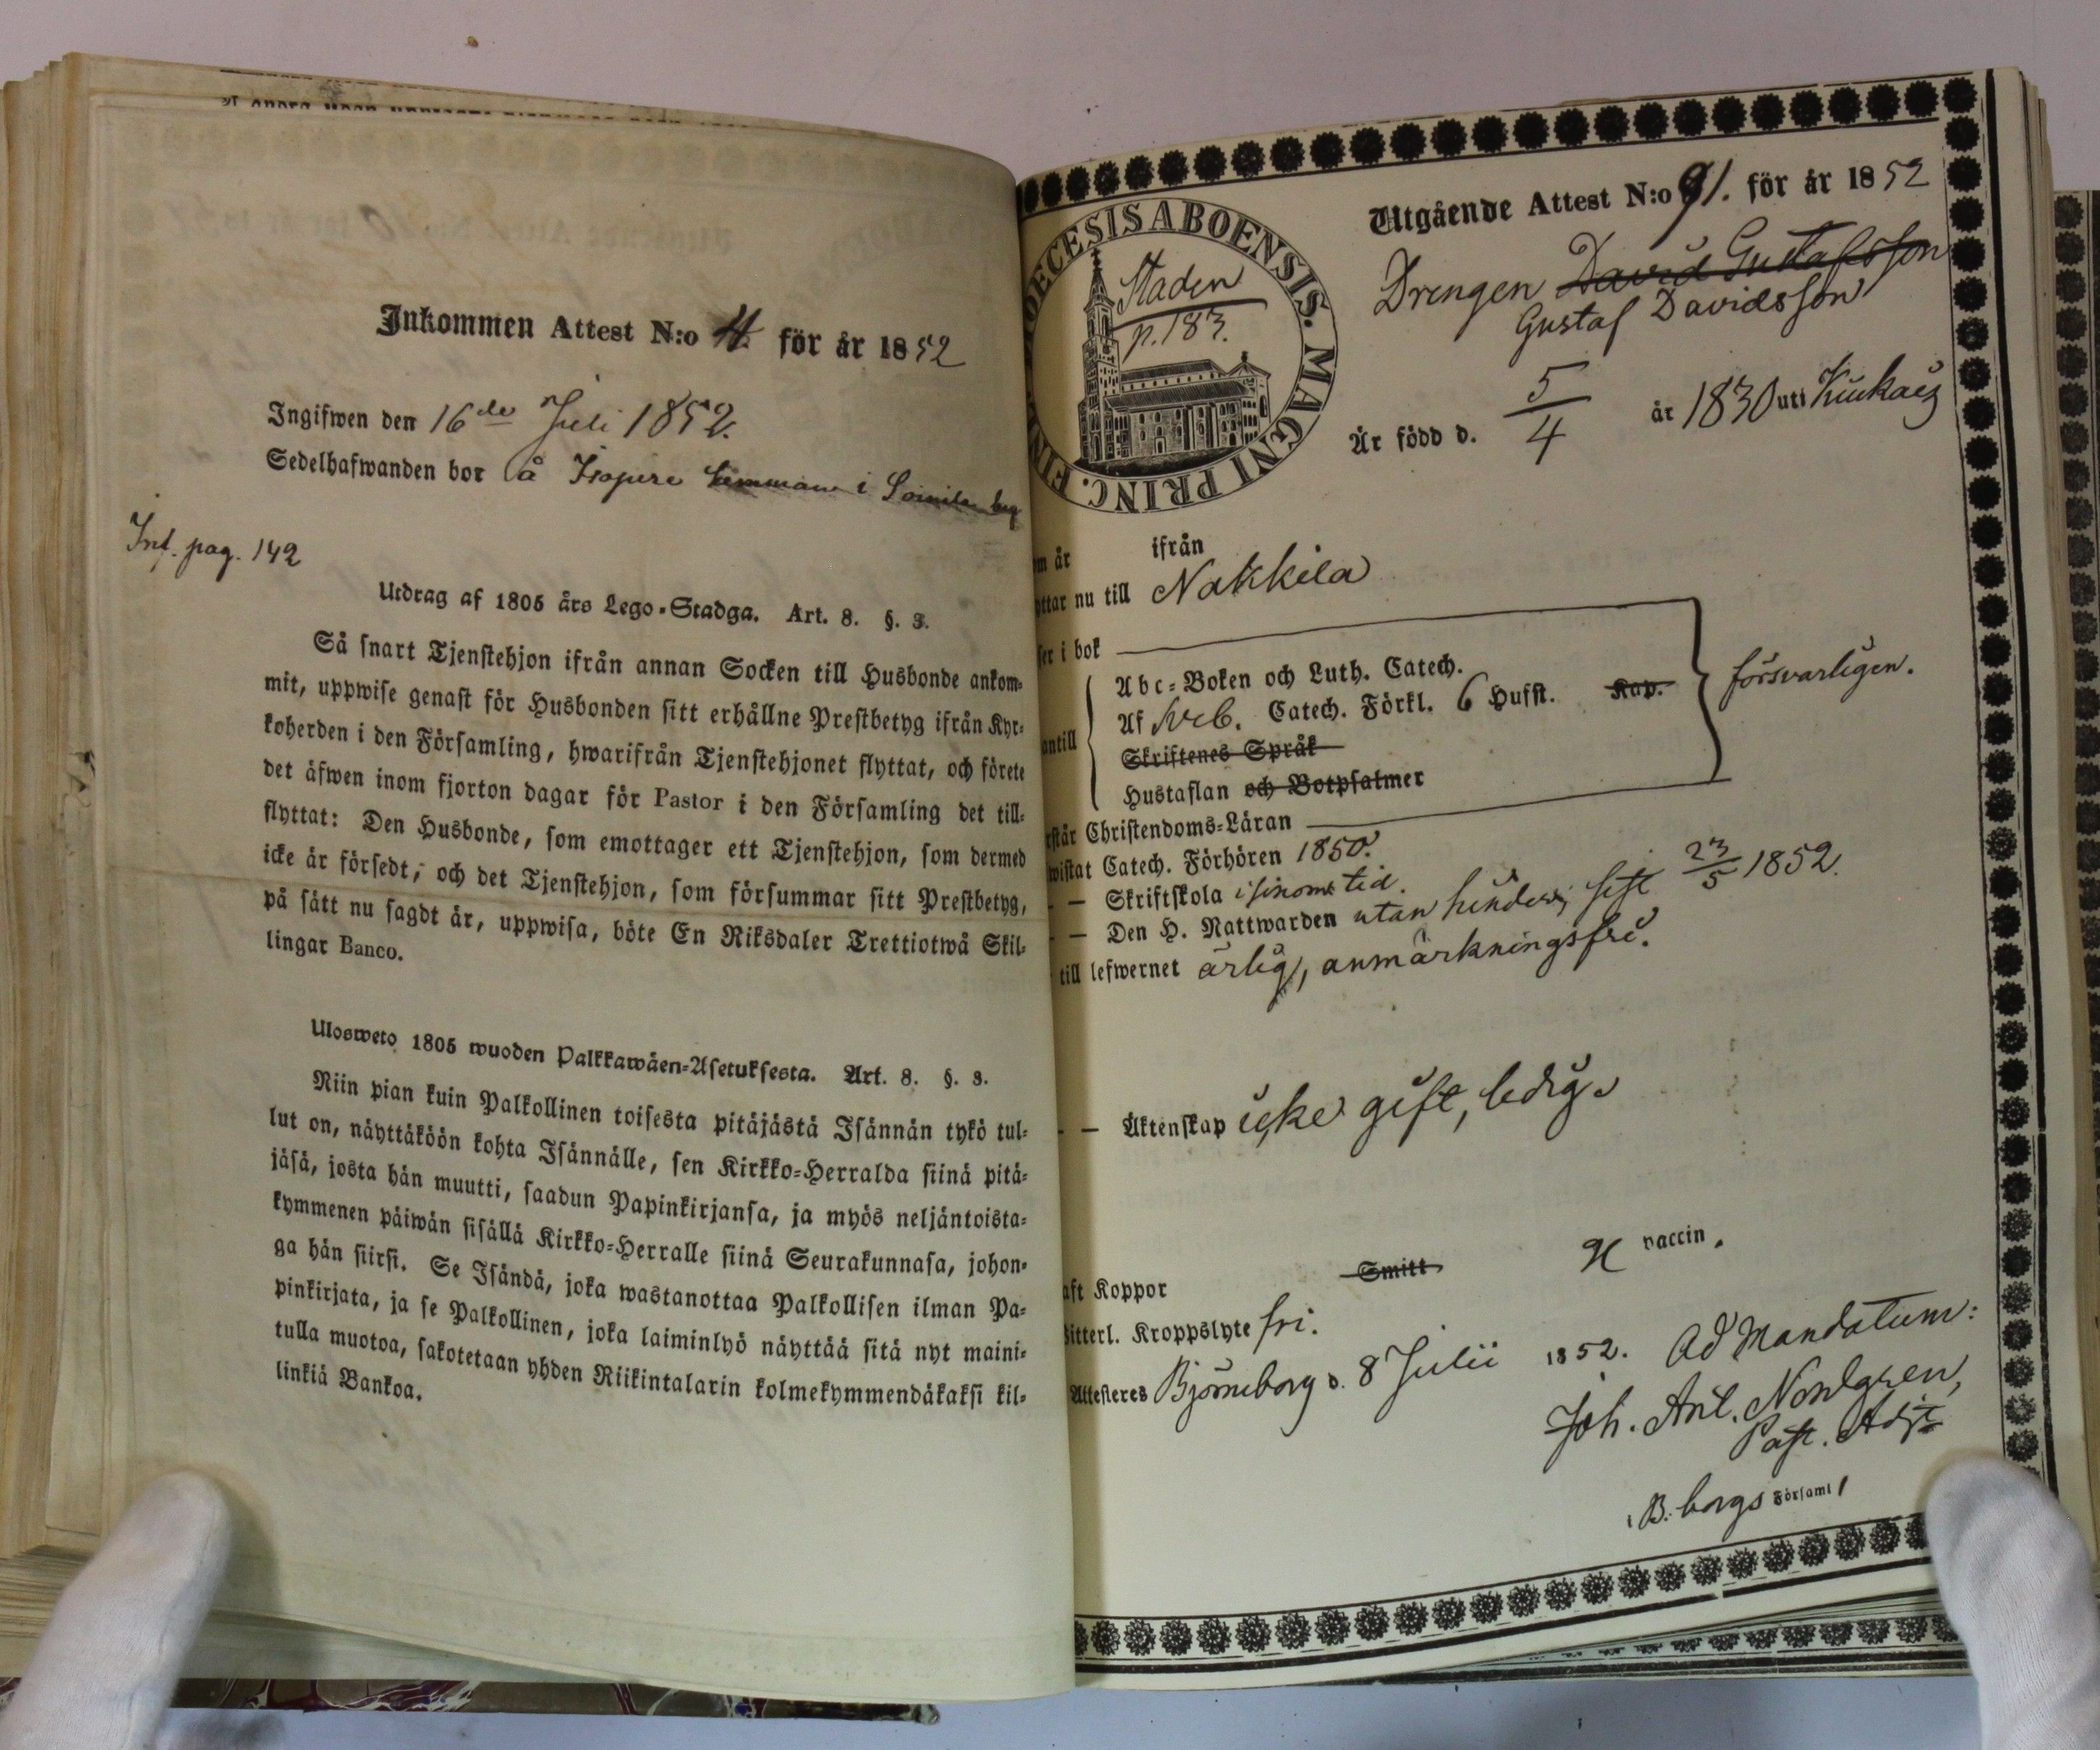 Inkommen Attest N:o 4. för år 1852
Ingifwen den 16de Juli 1852.
Sedelhafwanden bor å i
Inf. pag. 142
Utdrag af 1805 års Lego-Stadga. Art. 8. §. 3.
Så snart Tjenstehjon ifrån annan Socken till Husbonde ankom-
mit, uppwise genast för Husbonden sitt erhållne Prestbetyg ifrån Kyr-
koherden i den Församling, hwarifrån Tjenstehjonet flyttat, och förete
det äfwen inom fjorton dagar för Pastor i den Församling det till-
flyttat: Den Husbonde, som emottager ett Tjenstehjon, som dermed
icke är försedt, och det Tjenstehjon, som försummar sitt Prestbetyg,
på sätt nu sagdt är, uppwisa, böte En Riksdaler Trettiotwå Skil-
lingar Banco.
Ulosweto 1805 wuoden Palkkawäen-Asetuksesta. Art. 8. §. 3.
Niin pian kuin Palkollinen toisesta pitäjästä Isännän tykö tul-
lut on, näyttäköön kohta Isännälle, sen Kirkko-Herralda siinä pitä-
jäsä, josta hän muutti, saadun Papinkirjansa, ja myös neljäntoista-
kymmenen päiwän sisällä Kirkko-Herralle siinä Seurakunnasa, johon-
ga hän siirsi. Se Isändä, joka wastanottaa Palkollisen ilman Pa-
pinkirjata, ja se Palkollinen, joka laiminlyö näyttää sitä nyt maini-
tulla muotoa, sakotetaan yhden Riikintalarin kolmekymmendäkaksi kil-
linkiä Bankoa.
DIOECESIS ABOENSIS. MAGNI PRINC. FIN
Staden
p. 183.
Utgående Attest N:o 91. för år 1852
Drengen David Gustafsson
Gustaf Davidsson
Är född d. 5/4 år 1830 uti Kiukais
m år ifrån
yttar nu till Nakkila
ser i bok
Abc-Boken och Luth. Catech.
antill Af Sveb. Catech. Förkl. 6 Hufst. Kap. försvarligen.
Skriftenes Språk
Hustaflan och Botpsalmer
rstår Christendoms-Läran
wistat Catech. Förhören 1850.
– – Skriftskola i sinom tid.
– – Den H. Nattwarden utan hinder, sist 23/5 1852.
till lefwernet ärlig, anmärkningsfri.
– – Äktenskap icke gift, ledig.
aft Koppor Smitt vaccin.
Witterl. Kroppslyte fri.
Attesteres Björneborg d. 8 Julii 1852. Ad Mandatum:
Joh. Ant. Nordgren,
Past. Adjt
i B:borgs Församl